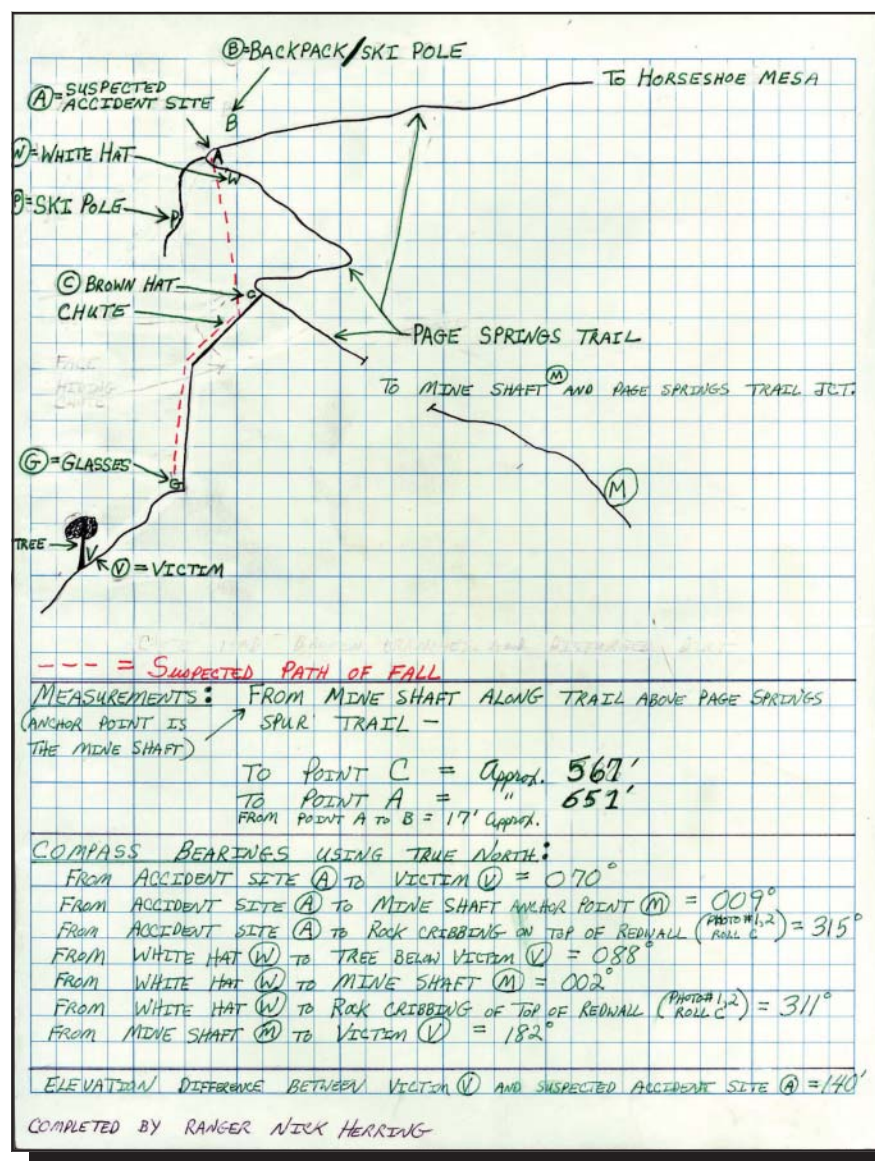 Ⓑ=BACKPACK/SKI POLE
TO HORSESHOE MESA
Ⓐ=SUSPECTED
ACCIDENT SITE
B
A
Ⓦ=WHITE HAT
W
Ⓟ=SKI POLE
P
Ⓒ BROWN HAT
C
CHUTE
PAGE SPRINGS TRAIL
TO MINE SHAFT Ⓜ AND PAGE SPRINGS TRAIL JCT.
Ⓖ=GLASSES
G
Ⓜ
TREE
V
Ⓥ=VICTIM
--- = SUSPECTED PATH OF FALL
MEASUREMENTS: FROM MINE SHAFT ALONG TRAIL ABOVE PAGE SPRINGS
(ANCHOR POINT IS SPUR TRAIL -
THE MINE SHAFT)
TO POINT C = Approx. 567'
TO POINT A = " 651'
FROM POINT A TO B = 17' Approx.
COMPASS BEARINGS USING TRUE NORTH:
FROM ACCIDENT SITE Ⓐ TO VICTIM Ⓥ = 070°
FROM ACCIDENT SITE Ⓐ TO MINE SHAFT ANCHOR POINT Ⓜ = 009°
FROM ACCIDENT SITE Ⓐ TO ROCK CRIBBING ON TOP OF REDWALL (PHOTO#1,2 ROLL C) = 315°
FROM WHITE HAT Ⓦ TO TREE BELOW VICTIM Ⓥ = 088°
FROM WHITE HAT Ⓦ TO MINE SHAFT Ⓜ = 002°
FROM WHITE HAT Ⓦ TO ROCK CRIBBING OF TOP OF REDWALL (PHOTO#1,2 ROLL C) = 311°
FROM MINE SHAFT Ⓜ TO VICTIM Ⓥ = 182°
ELEVATION DIFFERENCE BETWEEN VICTIM Ⓥ AND SUSPECTED ACCIDENT SITE Ⓐ = 140'
COMPLETED BY RANGER NICK HERRING